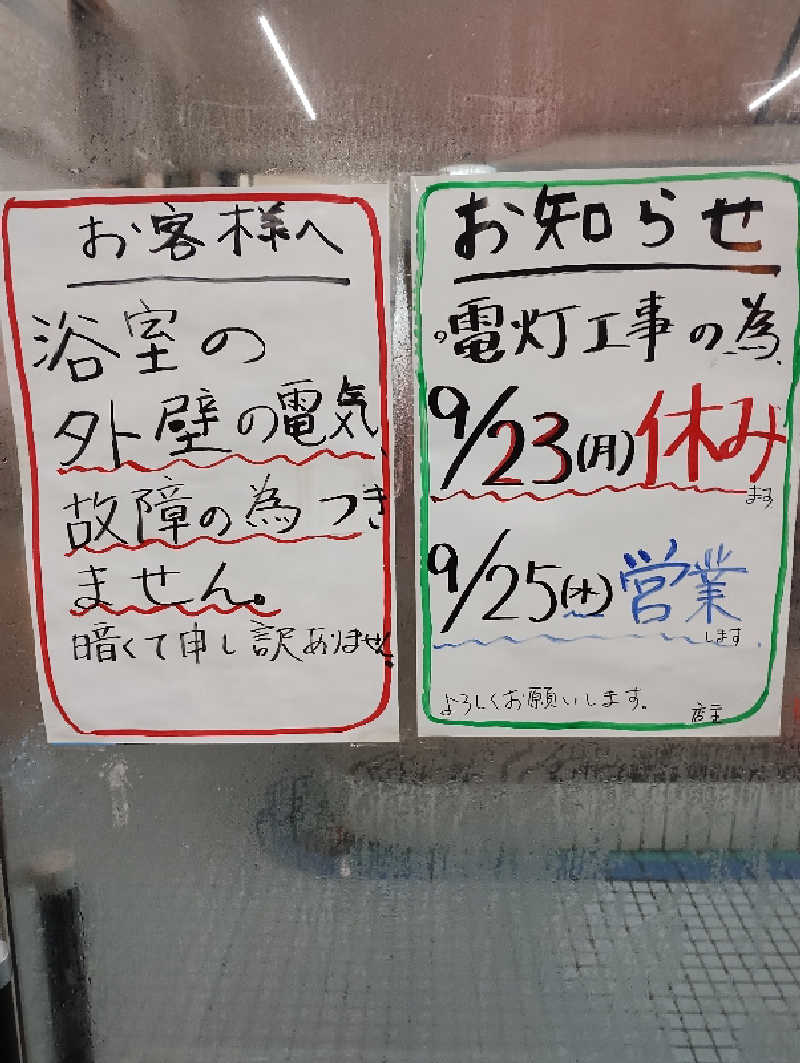 お客様へ
浴室の
外壁の電気、
故障の為つき
ません。
暗くて申し訳ありません。
お知らせ
。電灯工事の為、
9/23(月)休み
ます
9/25(水)営業
します.
よろしくお願いします。
店主